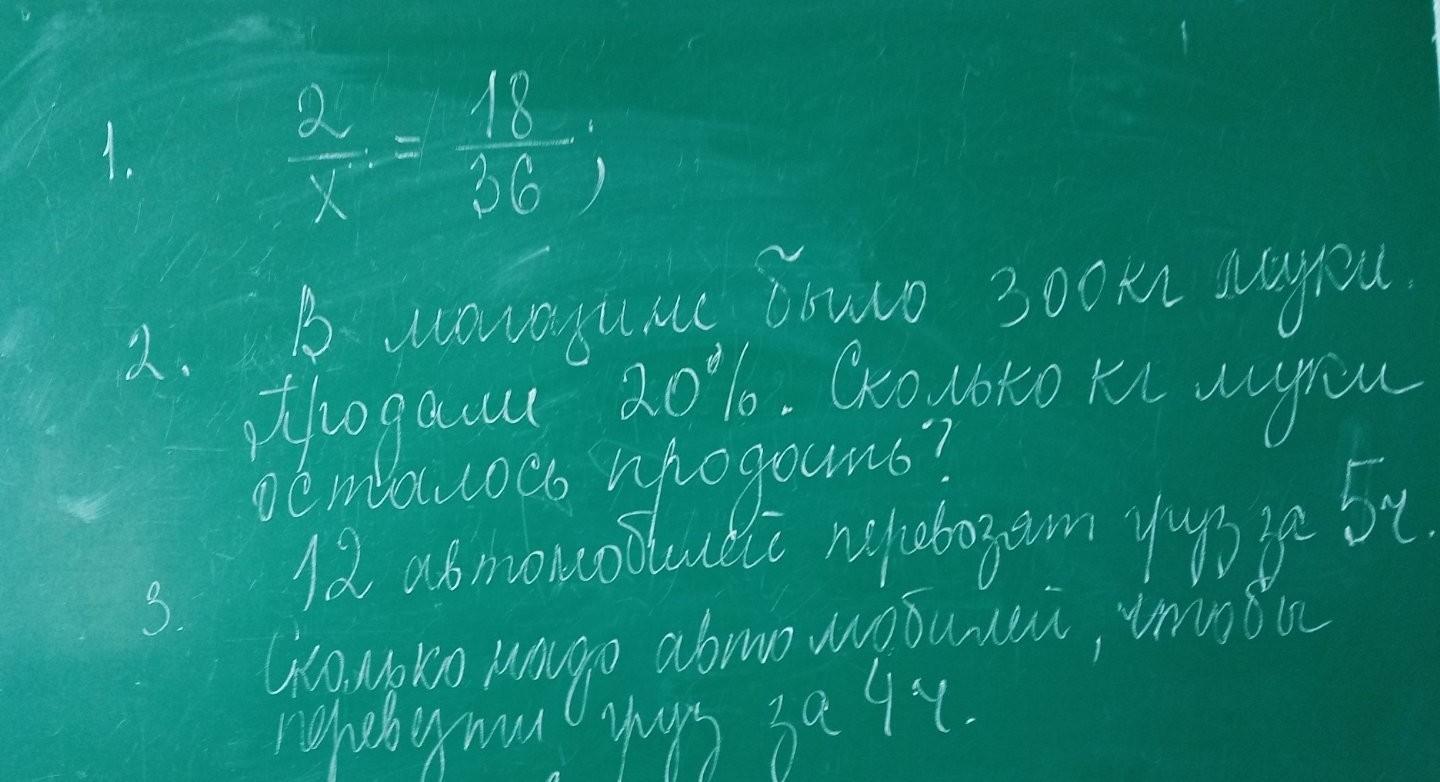 1. 2/x = 18/36;
2. В магазине было 300 кг муки.
Продали 20%. Сколько кг муки
осталось продать?
3. 12 автомобилей перевозят груз за 5ч.
Сколько надо автомобилей, чтобы
перевезти груз за 4ч.